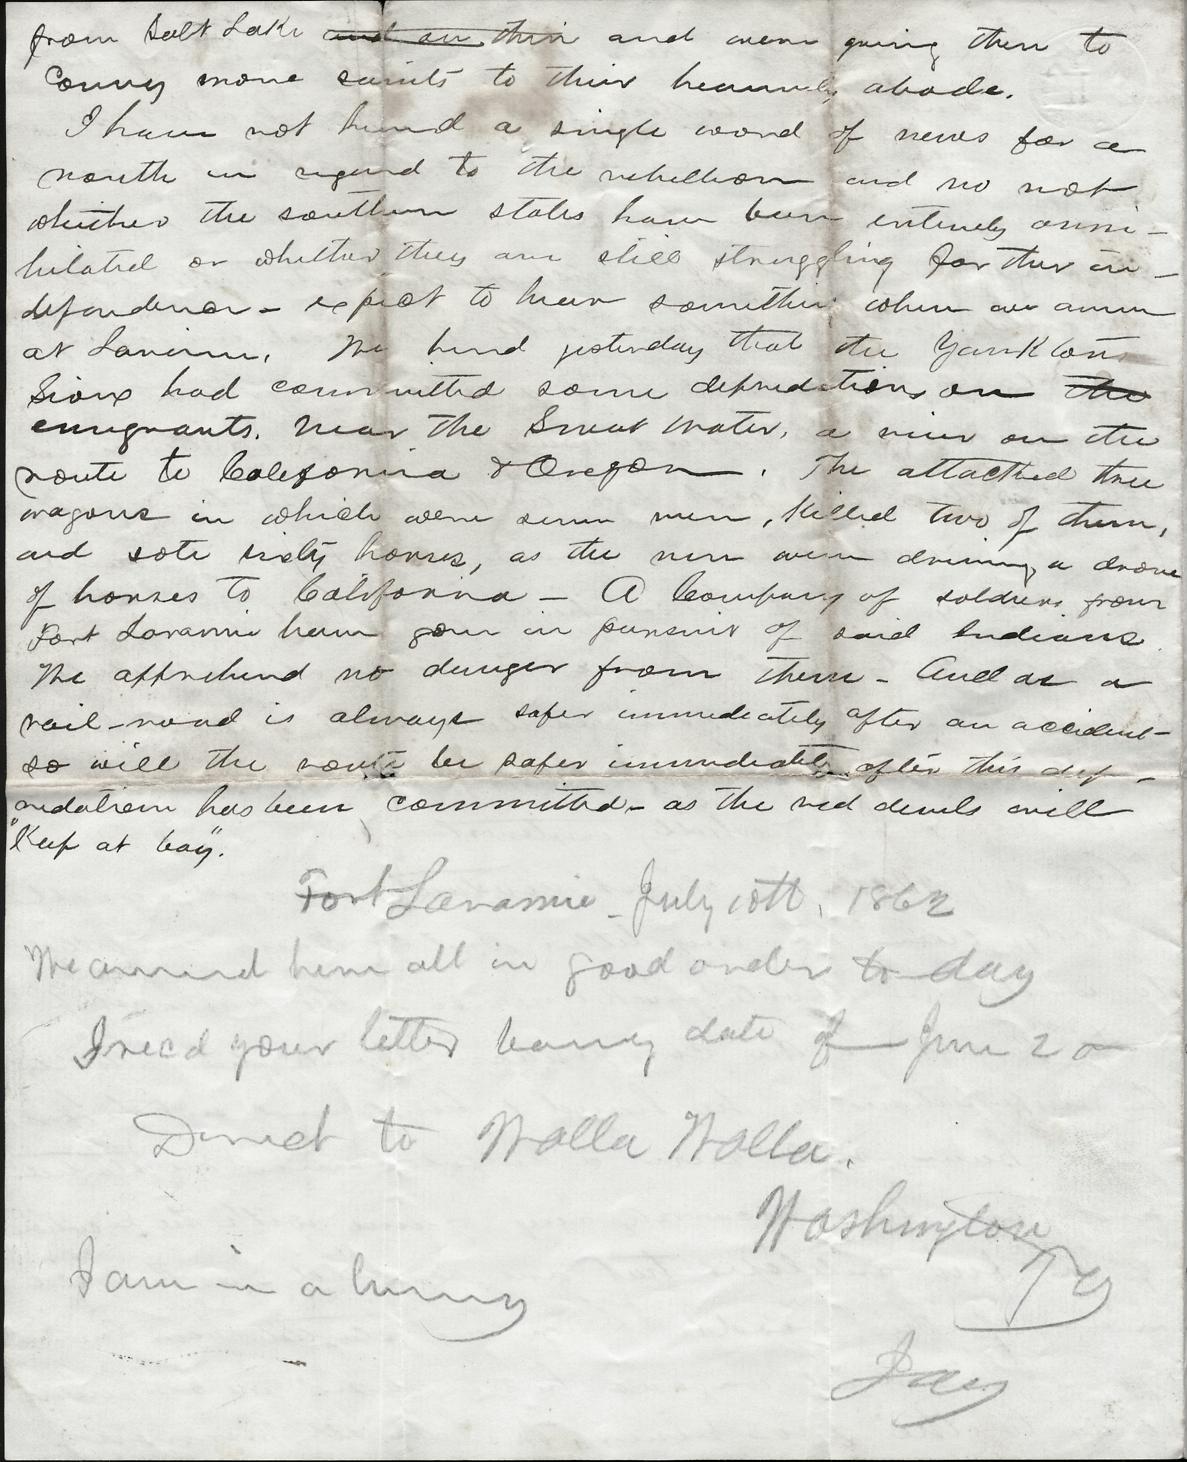 from Salt Lake and on their and were going then to
Convey more saints to their heavenly abode.
I have not heard a single word of news for a
month in regard to the rebellion and no not
whether the southern states have been entirely anni-
hilated or whether they are still struggling for ther in-
dependence - expect to hear something when we arrive
at Laramie. We heard yesterday that the Yanktons
Sioux had committed some depredations on the
emigrants. Near the Sweet Water, a river on the
route to California & Oregon. The attacthed three
wagons in which were seven men, killed two of them,
and sote sixty horses, as the men were driving a drove
of horses to California - A Company of soldiers from
Fort Laramie have gone in pursuit of said Indians
We apprehend no danger from them - And as a
rail-road is always safer immediately after an accident-
so will the route be safer immediately after this dep-
redation has been committed - as the red devils will
"Keep at bay".
Fort Laramie - July 10th, 1862
We arrived here all in good order to-day
I rec'd your letter bearing date of June 20
Direct to Walla Walla.
Washington
Ty
I am in a hurry
Jay